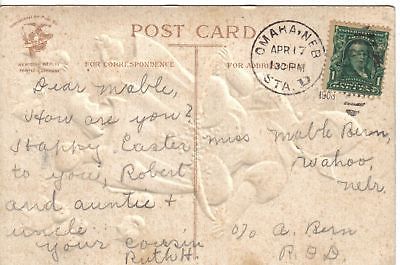 POST CARD
FOR CORRESPONDENCE
FOR ADDRESS
OMAHA, NEB.
APR 17
130 PM
STA. D
1908
1
Dear Mable,
How are you?
Happy Easter
to you, Robert
and auntie &
uncle.
your cousin
Ruth H.
Miss Mable Bern,
Wahoo,
Nebr.
c/o A. Bern
R.F.D.